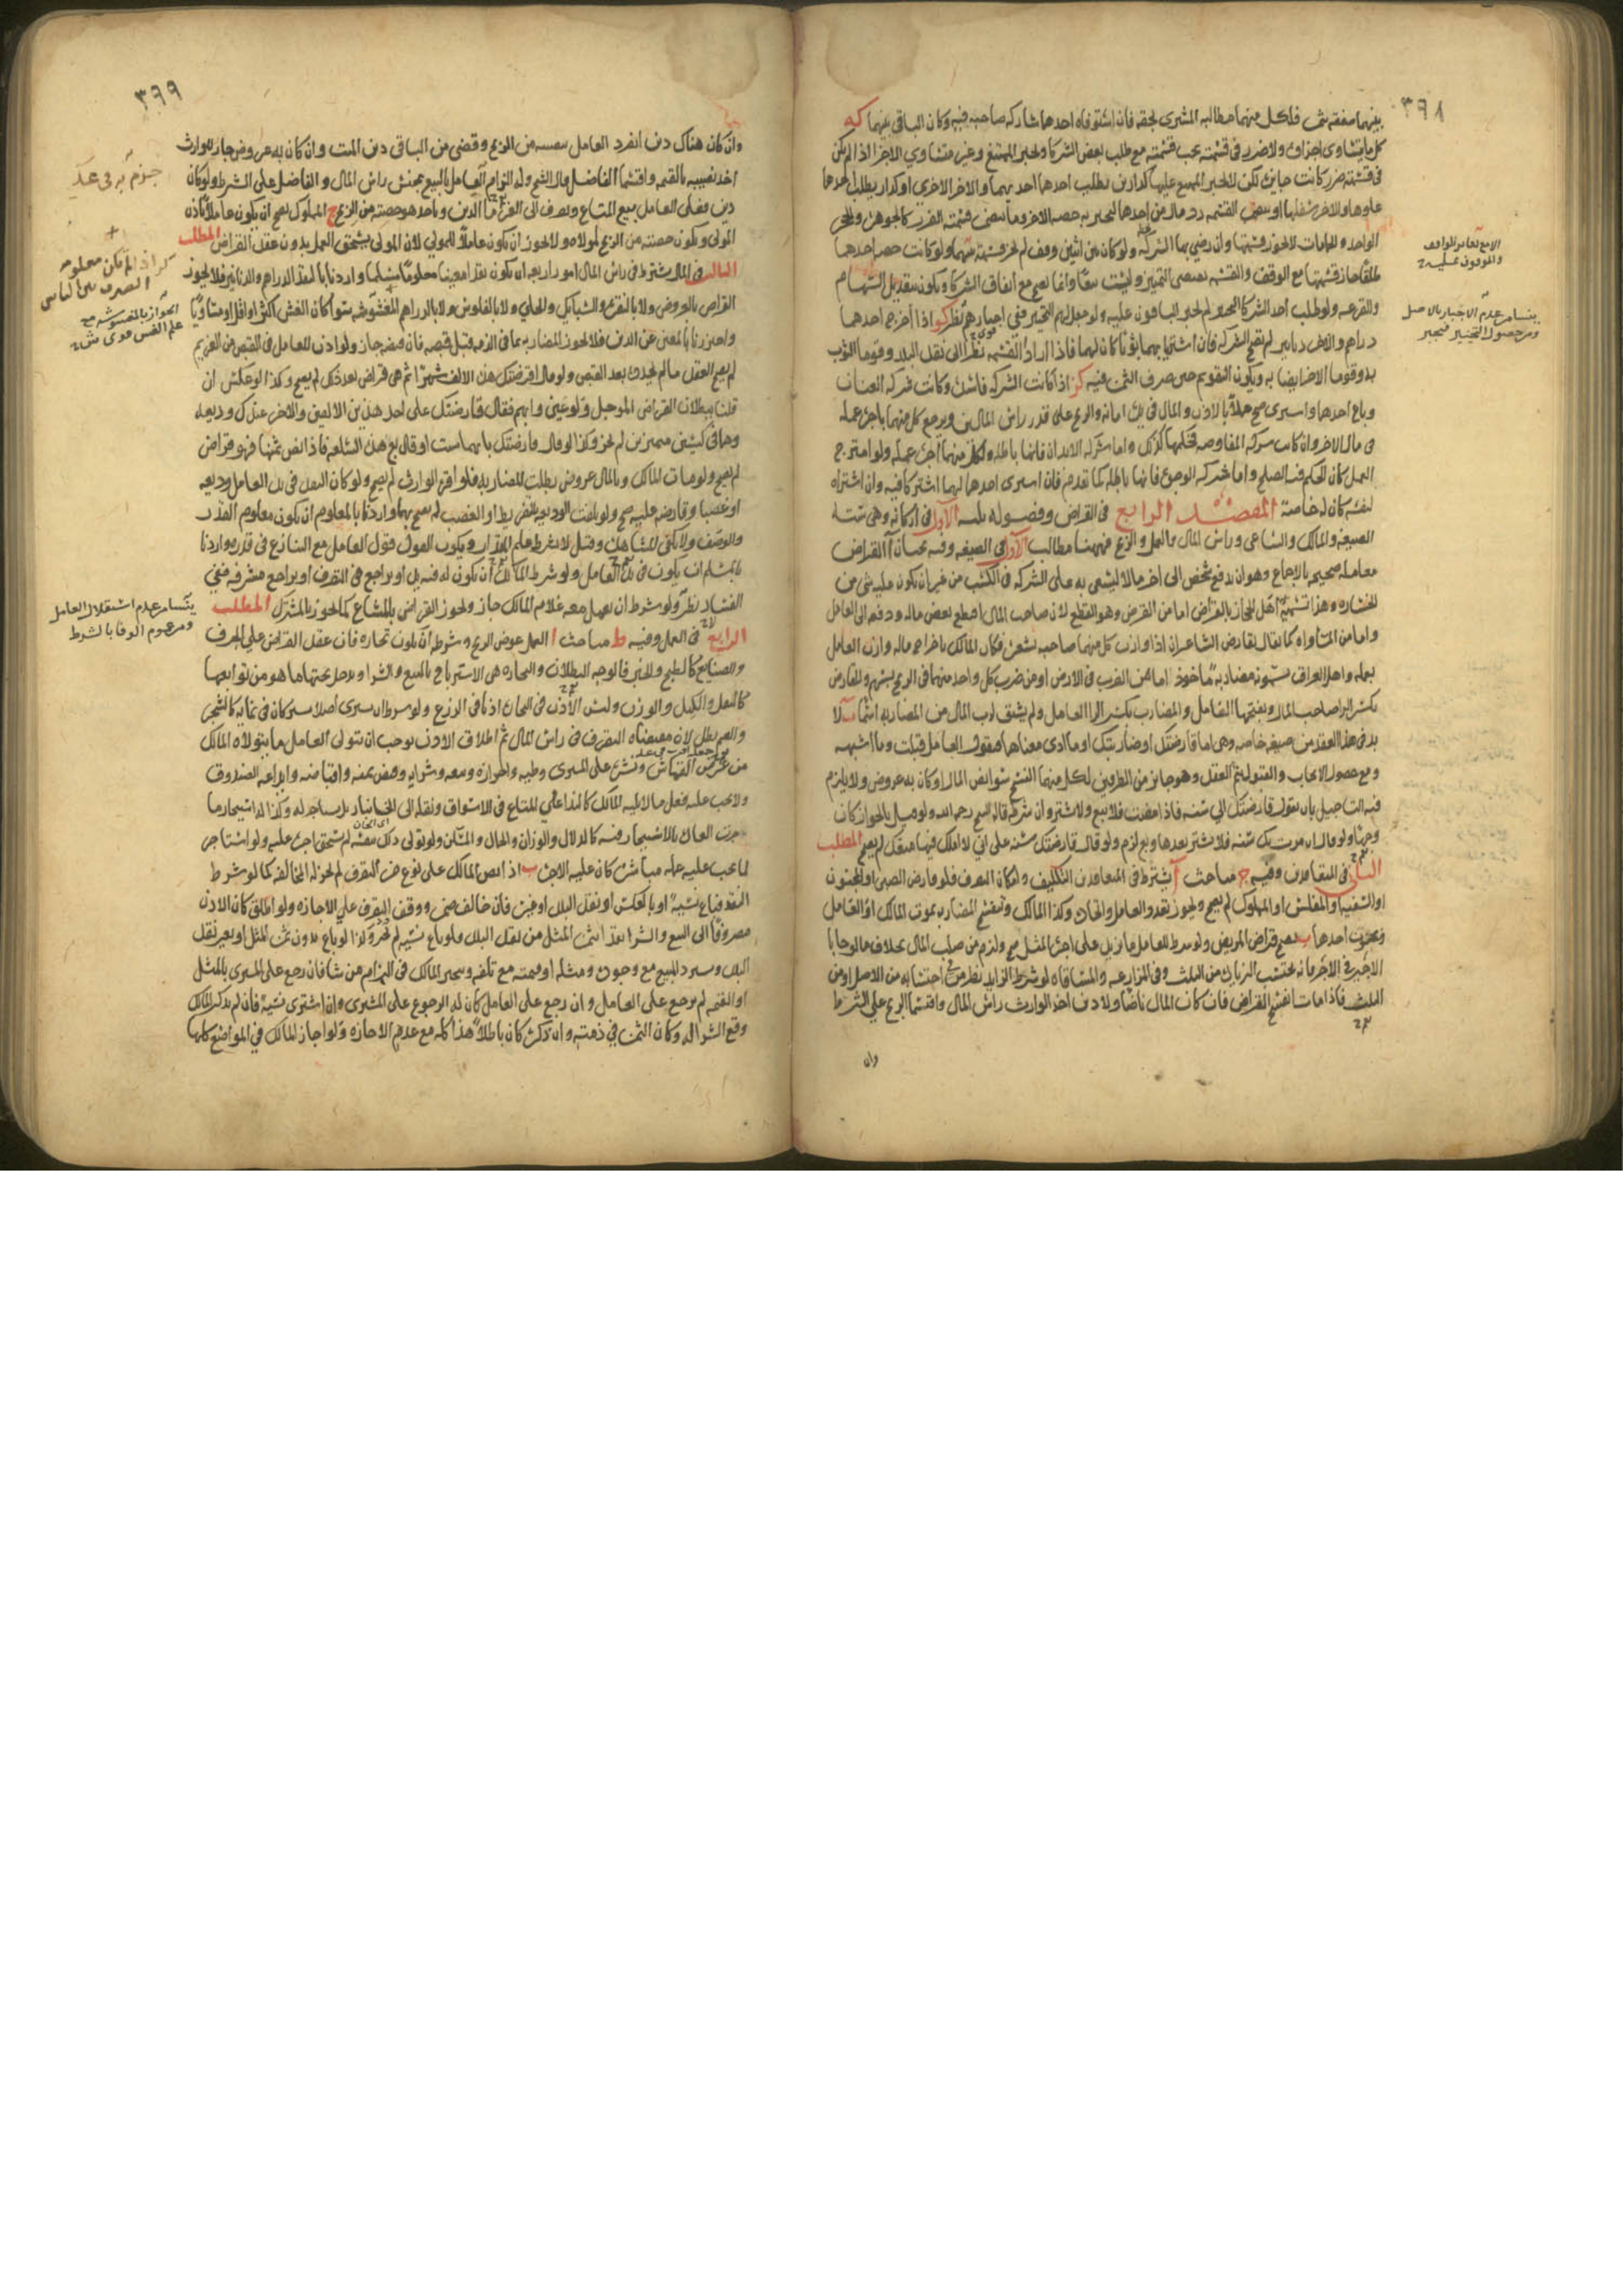 ٣٩٨
بينهما صفقة فلكل منهما مطالبة المشتري بحقه فان استوفاه احدهما شاركه صاحبه فيه وكان الباقي بينهما كه
كل ما يتساوى اجزاؤه ولا ضرر في قسمته يجب قسمته مع طلب بعض الشركا ويجبر الممتنع وغير متساوي الاجزا اذا لم يكن
في قسمته ضرر كانت جايزة لكن لا يجبر الممتنع عليها كدارين يطلب احدهما احديهما والاخر الاخرى او كدار يطلب احدهما
علوها والاخر سفلها رد مال من احدهما لم يجبر كالجوهر والحجر
الواحد والحمامات لا يجوز قسمتها وان رضي بها الشركا ولو كان بين اثنين وقف لم يجز قسمته بينهما ولو كانت حصة احدهما
طلقا جاز قسمتها مع الوقف والقسمة تقتضي التمييز وليست بيعا وانما يصح مع اتفاق الشركا ويكون بتعديل السهام
والقرعة ولو طلب احد الشركا لم يجبر الباقون عليه نظر كو اذا اخرج احدهما
دراهم والاخر دنانير لم تصح الشركة فان اشتريا بهما ثوبا كان لهما فاذا ارادا القسمة نظرا الى نقد البلد وقوما الثوب
به وقوما الاخر ايضا به ويكون التقويم حين صرف الثمن فيه كز اذا كانت الشركة فاسدة وكانت شركة العنان
وباع احدهما واشترى صح عملا بالاذن والمال في يده امانة والربح على قدر راس المالين ويرجع كل منهما باجرة عمله
في مال الاخر وان كانت شركة المفاوضة فحكمها كذلك واما شركة الابدان فانها باطلة ولكل منهما اجرة عمله ولو امتزج
العمل كان الحكم فيه الصلح واما شركة الوجوه فانها باطلة كما تقدم فان اشترى احدهما لهما اشتركا فيه وان اشتراه
لنفسه كان له خاصة المقصد الرابع في القراض وفصوله ثلثة الاول في اركانه وهي ستة
الصيغة والمالك والساعي وراس المال والعمل والربح فهيهنا مطالب الاول في الصيغة وفيه بحثان آ القراض
معاملة صحيحة بالاجماع وهو ان يدفع شخص الى اخر مالا ليشتري به على الشركة في الكسب من غير ان يكون عليه شي من
الخسارة وهذا تسميه اهل الحجاز بالقراض اما من القرض وهو القطع لان صاحب المال اقطع بعض ماله ودفعه الى العامل
واما من المساواة كما يقال تقارض الشاعران اذا وازن كل منهما صاحبه بشعره فكان المالك باخراج ماله وازن العامل
بعمله واهل العراق تسمونه مضاربة ماخوذ اما من الضرب في الارض او من ضرب كل واحد منهما في الربح بسهم والمقارض
بكسر الرا صاحب المال وبفتحها العامل والمضارب بكسر الرا العامل ولم يشتق لرب المال من المضاربة اسما ب لا
بد في هذا العقد من صيغة خاصة وهي اما قارضتك او ضاربتك او ما ادى معناها فيقول العامل قبلت وما اشبهه
ومع حصول الايجاب والقبول يتم العقد وهو جايز من الطرفين لكل منهما الفسخ سوا نض المال او كان به عروض ولا يلزم
فيه التاجيل بان يقول قارضتك الى سنة فاذا مضت فلا تبع ولا تشتر وان شرطه قاله الشيخ رحمه الله
وجها ولو قال ان مرت بك سنة فلا تشتر بعدها وبع لزم ولو قال قارضتك سنة على اني لا املك فيها منعك لم يصح المطلب
الثاني في المتعاقدين وفيه ج مباحث آ يشترط في المتعاقدين التكليف وامكان التصرف فلو قارض الصبي او المجنون
او السفيه او المفلس او المملوك لم يصح ويجوز تعدد العامل واتحاده وكذا المالك وتنفسخ المضاربة بموت المالك او العامل
وبجنون احدهما ب يصح قراض المريض ولو شرط للعامل ما يزيد على اجرة المثل صح ولزم من صلب المال بخلاف ما لو حابا
الاجير في الاجر فانه يحتسب الزيادة من الثلث وفي المزارعة والمساقاة لو شرط الزايد نظر من احتسابه من الاصل او من
الثلث فاذا مات انفسخ القراض فان كان المال ناضا ولا دين اخذ الوارث راس المال واقتسما الربح على الشرط
وان
ينشا من عدم الاجبار بالاصل
ومن حصول التخيير فيجبر
٣٩٩
وان كان هناك دين انفرد العامل بحصته من الربح وقضى من الباقي دين الميت وان كان به عروض جاز للوارث
اخذ نصيبه بالقيمة واقتسما الفاضل قال الشيخ وله الزام العامل بالبيع بجنس راس المال والفاضل على الشرط ولو كان
دين فعلى العامل بيع المتاع ويصرف الى الغرما الدين وياخذ هو حصته من الربح ج المملوك يصح ان يكون عاملا باذن
المولى ويكون حصته من الربح لمولاه ولا يجوز ان يكون عاملا للمولى لان المولى يستحق العمل بدون عقد القراض المطلب
الثالث في المال يشترط في راس المال امور اربعة ان يكون نقدا معينا معلوما مسلما واردنا بالنقد الدراهم والدنانير فلا يجوز
القراض بالعروض ولا بالنقرة والسبايك والحلي ولا بالفلوس ولا بالدراهم المغشوشة سوا كان الغش اكثر او اقل او متساويا
واحترزنا بالمعين عن الدين فلا يجوز المضاربة بما في الذمة قبل قبضه فان قبضه جاز ولو اذن للعامل في القبض من الغريم
لم يصح العقد ما لم يجدده بعد القبض ولو قال اقرضتك هذه الالف شهرا ثم هي قراض بعد ذلك لم يصح وكذا لو عكس ان
قلنا ببطلان القراض الموجل ولو عين وابهم فقال قارضتك على احد هذين الالفين والاخر عندك وديعة
وهما في كيسين متميزين لم يجز وكذا لو قال قارضتك بايهما شيت او قال بع هذه السلعة فاذا نض ثمنها فهو قراض
لم يصح ولو مات المالك وبالمال عروض بطلت المضاربة فلو اقره الوارث لم يصح ولو كان النقد في يد العامل وديعة
او غصبا وقارضه عليه صح ولو تلفت الوديعة بالتفريط او الغصب لم يصح بهما واردنا بالمعلوم ان يكون معلوم القدر
والوصف ولا يكفي المشاهدة وقيل لا يشترط علم المقدار ويكون القول قول العامل مع التنازع في قدره واردنا
بالمسلم ان يكون في يد العامل ولو شرط المالك ان يكون له فيه يد او يراجع في التصرف او يراجع مشرفه ففي
الفساد نظر ولو شرط ان يعمل معه غلام المالك جاز ويجوز القراض بالمشاع كما يجوز بالمشترك المطلب
الرابع في العمل وفيه ط مباحث ا العمل عوض الربح وشرطه ان يكون تجارة فان عقد القراض على الحرف
والصنايع كالطبخ والخبز فالوجه البطلان والتجارة هي الاسترباح بالبيع والشرا ويدخل تحتهما ما هو من توابعهما
كالنقل والكيل والوزن وليس الاذن في التجارة اذنا في الزرع ولو شرط ان يشتري اصلا يشتركان في نمايه كالشجر
والغنم بطل لان مقتضاه التصرف في راس المال ثم اطلاق الاذن يوجب ان يتولى العامل ما يتولاه المالك
من عرض القماش ونشره على المشتري وطيه واحرازه وبيعه وشرايه وقبض ثمنه واقباضه وايداعه الصندوق
ولا يجب عليه فعل ما لا يليه المالك كالنداء على المتاع في الاسواق ونقله الى الخانبار بل يستاجر له وكذا له استيجار ما
جرت العادة بالاستيجار فيه كالدلال والوزان والحمال ولو تولى ذلك بنفسه لم يستحق اجرة عليه ولو استاجر
لما يجب عليه عمله مباشرة كان عليه الاجرة ب اذا نص المالك على نوع من التصرف لم يجز له المخالفة كما لو شرط
النقد فباع نسية او بالعكس او نقد البلد او غيره فان خالف ضمن ووقف التصرف على الاجازة ولو اطلق كان الاذن
مصروفا الى البيع والشرا نقدا بثمن المثل من نقد البلد فلو باع نسية لم يجز وكذا لو باع بدون ثمن المثل او بغير نقد
البلد ويسترد المبيع مع وجوده ومثله او قيمته مع تلفه ويتخير المالك في الزام من شا فان رجع على المشتري بالمثل
او القيمة لم يرجع على العامل وان رجع على العامل كان له الرجوع على المشتري وان اشترى نسية فان لم يذكر المالك
وقع الشرا له وكان الثمن في ذمته وان ذكره كان باطلا هذا كله مع عدم الاجازة ولو اجاز المالك في المواضع كلها
الجواز بالمغشوشة مع
علم الغش قوى
ينشا من عدم استقلال العامل
ومن عموم الوفا بالشرط